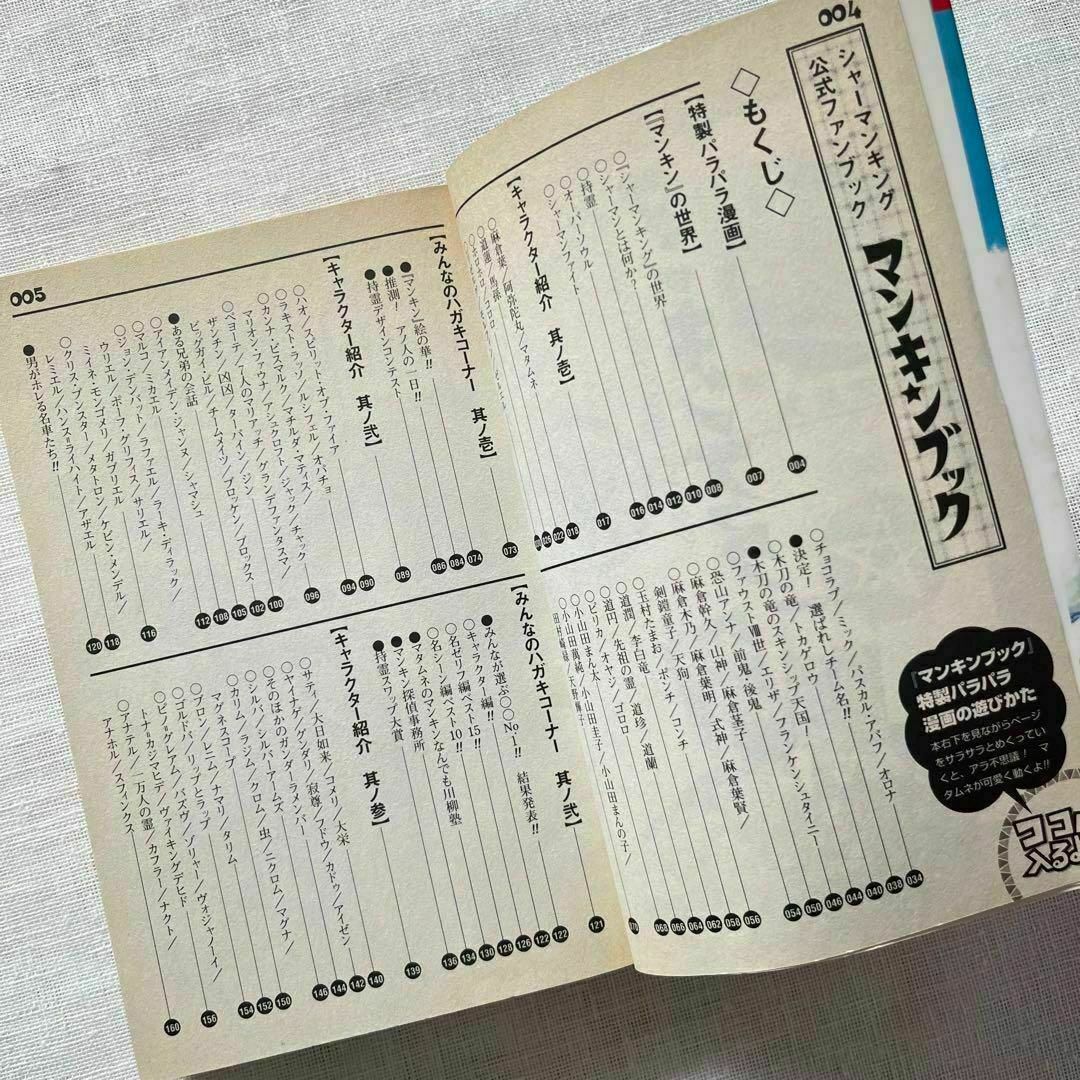 004
シャーマンキング
公式ファンブック
マンキンブック
◇もくじ◇
004
【特製パラパラ漫画】
007
【『マンキン』の世界】
○『シャーマンキング』の世界
008
○シャーマンとは何か?
010
○持霊
012
○オーバーソウル
014
○シャーマンファイト
016
【キャラクター紹介 其ノ壱】
017
○麻倉葉/阿弥陀丸/マタムネ
018
○道蓮/馬孫
022
○ホロホロ/コロロ
026
○チョコラブ/ミック/パスカル・アバフ/オロナ
034
●決定! 選ばれしチーム名!!
038
○木刀の竜/トカゲロウ
040
●木刀の竜のスキンシップ天国!
044
○ファウストⅧ世/エリザ/フランケンシュタイニー
046
○恐山アンナ/前鬼、後鬼
050
○麻倉幹久/山神/麻倉茎子
054
○麻倉木乃/麻倉葉明/式神/麻倉葉賢/
剣鎧童子/天狗
056
○玉村たまお/ポンチ/コンチ
058
○道潤/李白竜
062
○道円/先祖の霊/道珍/道蘭
064
○ピリカ/オヤジ/ゴロロ
066
○小山田まん太
068
○小山田萬純/天野輝子/小山田圭子/小山田まんの子/
070
本右下を見ながらページ
をサラサラとめくってい
くと、アラ不思議! マ
タムネが可愛く動くよ!!
『マンキンブック』
特製パラパラ
漫画の遊びかた
005
【みんなのハガキコーナー 其ノ壱】
073
●『マンキン』絵の華!!
074
●推測! アノ人の一日!!
084
●持霊デザインコンテスト
086
【キャラクター紹介 其ノ弐】
089
○ハオ/スピリット・オブ・ファイア
090
○ラキスト・ラッソ/ルシフェル/オパチョ
094
○カンナ・ビスマルク/マチルダ・マティス/
マリオン・ファウナ/アシュクロフト/ジャック/チャック
096
○ペヨーテ/7人のマリアッチ/グランデファンタスマ/
100
ザンチン/凶凶/ターバイン/ジン/
102
ビッグガイ・ビル/チームメイツ/ブロッケン/ブロックス
105
●ある兄弟の会話
108
○アイアンメイデン・ジャンヌ/シャマシュ
112
○マルコ/ミカエル
116
○ジョン・デンバット/ラファエル/ラーキ・ディラック/
ウリエル/ポーフ・グリフィス/サリエル/
ミイネ・モンゴメリ/ガブリエル
118
○クリス・ブンスター/メタトロン/ケビン・メンデル/
レミエル/ハンス=ライハイト/アザエル
●男がホレる名車たち!!
120
【みんなのハガキコーナー 其ノ弐】
121
●みんなが選ぶ○○No.1!! 結果発表!!
122
○キャラクター編!!
122
○名ゼリフ編ベスト15!!
126
○名シーン編ベスト10!!
128
●マタムネのマンキンなんでも川柳塾
130
●マンキン探偵事務所
134
●持霊スワップ大賞
136
【キャラクター紹介 其ノ参】
139
○サティ/大日如来/コメリ/大栄
140
○ヤイナゲ/ゲンダリ/寂尊/フドウ/カドゥ/アイゼン
142
○そのほかのガンダーラメンバー
144
○シルバ/シルバーアームズ
146
○カリム/ラジム/クロム/虫/ニクロム/マグナ/
マグネスコープ
150
○ブロン/レニム/ナマリ/タリム
152
○ゴルドバ/リップとラップ
154
○ピノ/グレアム/バズウ/ゾリャー/ヴォジャノーイ/
トナ=カジマヒデ/ヴァイキングデヒド
156
○アナテル/一万人の霊/カフラー/ナクト/
アナホル/スフィンクス
160